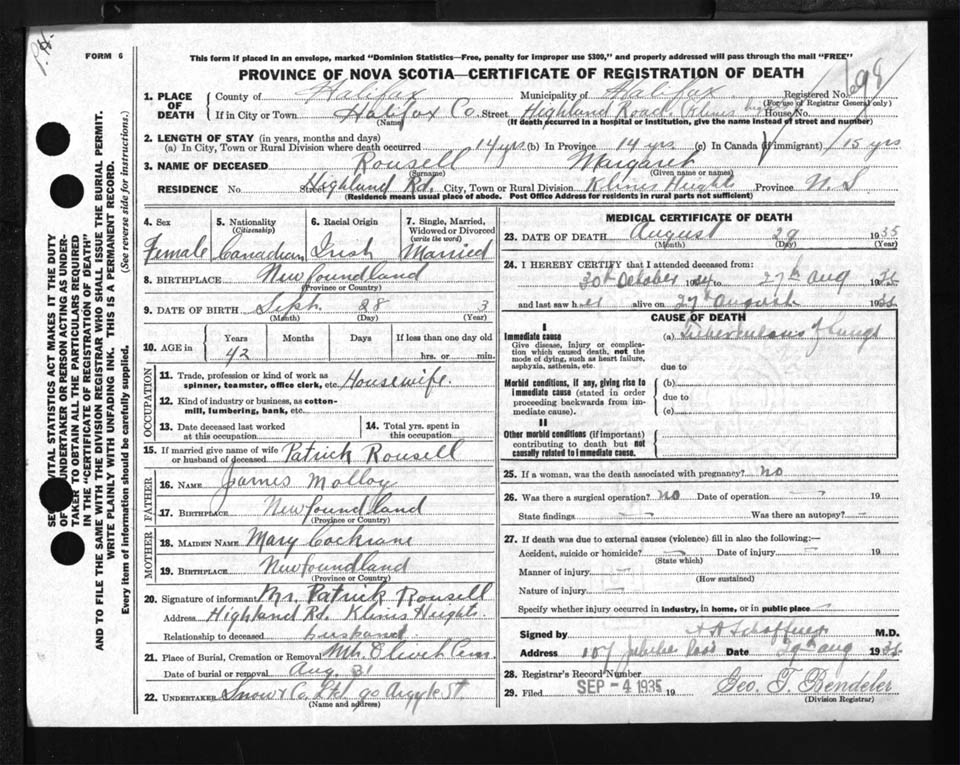 FORM 6
This form if placed in an envelope, marked "Dominion Statistics—Free, penalty for improper use $300," and properly addressed will pass through the mail "FREE"
PROVINCE OF NOVA SCOTIA—CERTIFICATE OF REGISTRATION OF DEATH
1. PLACE OF DEATH
County of Halifax Municipality of Halifax Registered No.
(For use of Registrar General only)
If in City or Town Halifax Co. Street Highland Road, House No.
(Name) (If death occurred in a hospital or institution, give the name instead of street and number)
2. LENGTH OF STAY (in years, months and days)
(a) In City, Town or Rural Division where death occurred 14 yrs (b) In Province 14 yrs. (c) In Canada (if immigrant) 15 yrs
3. NAME OF DECEASED Rousell Margaret
(Surname) (Given name or names)
RESIDENCE No. Street Highland Rd. City, Town or Rural Division Province N. S
(Residence means usual place of abode. Post Office Address for residents in rural parts not sufficient)
4. Sex Female
5. Nationality (Citizenship) Canadian
6. Racial Origin Irish
7. Single, Married, Widowed or Divorced (write the word) Married
8. BIRTHPLACE Newfoundland
(Province or Country)
9. DATE OF BIRTH Sept. 28 3
(Month) (Day) (Year)
10. AGE in Years Months Days If less than one day old
42 hrs. or min.
OCCUPATION
11. Trade, profession or kind of work as spinner, teamster, office clerk, etc. Housewife.
12. Kind of industry or business, as cotton-mill, lumbering, bank, etc.
13. Date deceased last worked at this occupation
14. Total yrs. spent in this occupation
15. If married give name of wife or husband of deceased Patrick Rousell
FATHER
16. NAME James Molloy
17. BIRTHPLACE Newfoundland
(Province or Country)
MOTHER
18. MAIDEN NAME Mary Cochrane
19. BIRTHPLACE Newfoundland
(Province or Country)
20. Signature of informant Mr. Patrick Rousell
Address Highland Rd. Klinis Heights.
Relationship to deceased husband
21. Place of Burial, Cremation or Removal Mt. Olivet Cem.
Date of burial or removal Aug 31
22. UNDERTAKER Snow & Co. Ltd 90 Argyle St
(Name and address)
MEDICAL CERTIFICATE OF DEATH
23. DATE OF DEATH August 29 1935
(Month) (Day) (Year)
24. I HEREBY CERTIFY that I attended deceased from:
30th October 1934 to 27th aug 1935
and last saw her alive on 27th august 1935
CAUSE OF DEATH
I
Immediate cause (a) Tuberculosis of Lungs
Give disease, injury or complication which caused death, not the mode of dying, such as heart failure, asphyxia, asthenia, etc.
due to
Morbid conditions, if any, giving rise to immediate cause (stated in order proceeding backwards from immediate cause).
(b)
due to
(c)
II
Other morbid conditions (if important) contributing to death but not causally related to immediate cause.
25. If a woman, was the death associated with pregnancy? no
26. Was there a surgical operation? no Date of operation — 19
State findings — Was there an autopsy? —
27. If death was due to external causes (violence) fill in also the following:—
Accident, suicide or homicide? — Date of injury — 19
(State which)
Manner of injury —
(How sustained)
Nature of injury —
Specify whether injury occurred in industry, in home, or in public place —
Signed by M.D.
Address 107 Jubilee Road Date 29th aug 1935
28. Registrar's Record Number
29. Filed SEP -4 1935 19 Geo. T. Bendeler
(Division Registrar)
VITAL STATISTICS ACT MAKES IT THE DUTY
UNDERTAKER OR PERSON ACTING AS UNDER-
TAKER TO OBTAIN ALL THE PARTICULARS REQUIRED
IN THE "CERTIFICATE OF REGISTRATION OF DEATH"
AND TO FILE THE SAME WITH THE DIVISION REGISTRAR WHO SHALL ISSUE THE BURIAL PERMIT.
WRITE PLAINLY WITH UNFADING INK. THIS IS A PERMANENT RECORD.
Every item of information should be carefully supplied. (See reverse side for instructions.)